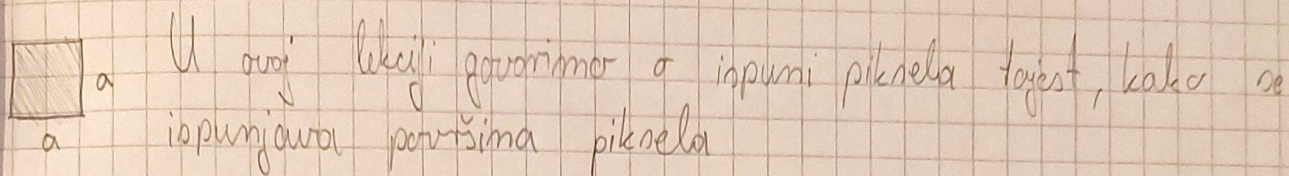 a U ovoj lekciji govorimo o ispuni piksela tojest, kako se
a ispunjava površina piksela